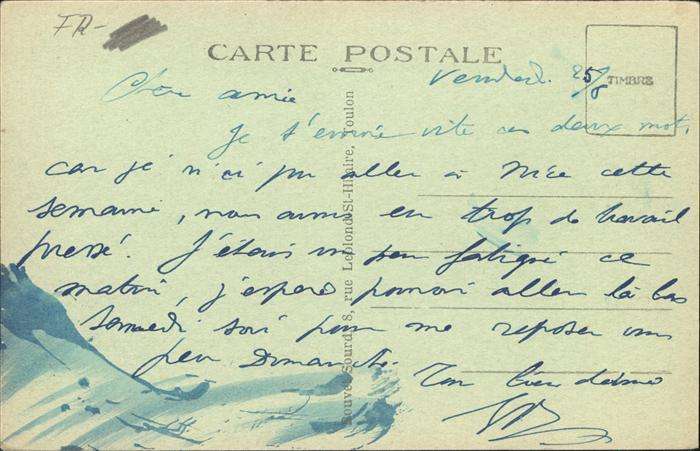 FR-
CARTE POSTALE
TIMBRE
Vendredi 25/8
Chère amie
Je t'envoie vite ces deux mots,
car je n'ai pu aller à Nice cette
semaine, nous avons eu trop de travail
pressé. J'étais un peu fatigué ce
matin, j'espère pouvoir aller là bas
samedi soir pour me reposer un
peu Dimanche.
Ton bien
8, rue Leblond-St-Hilaire, Toulon